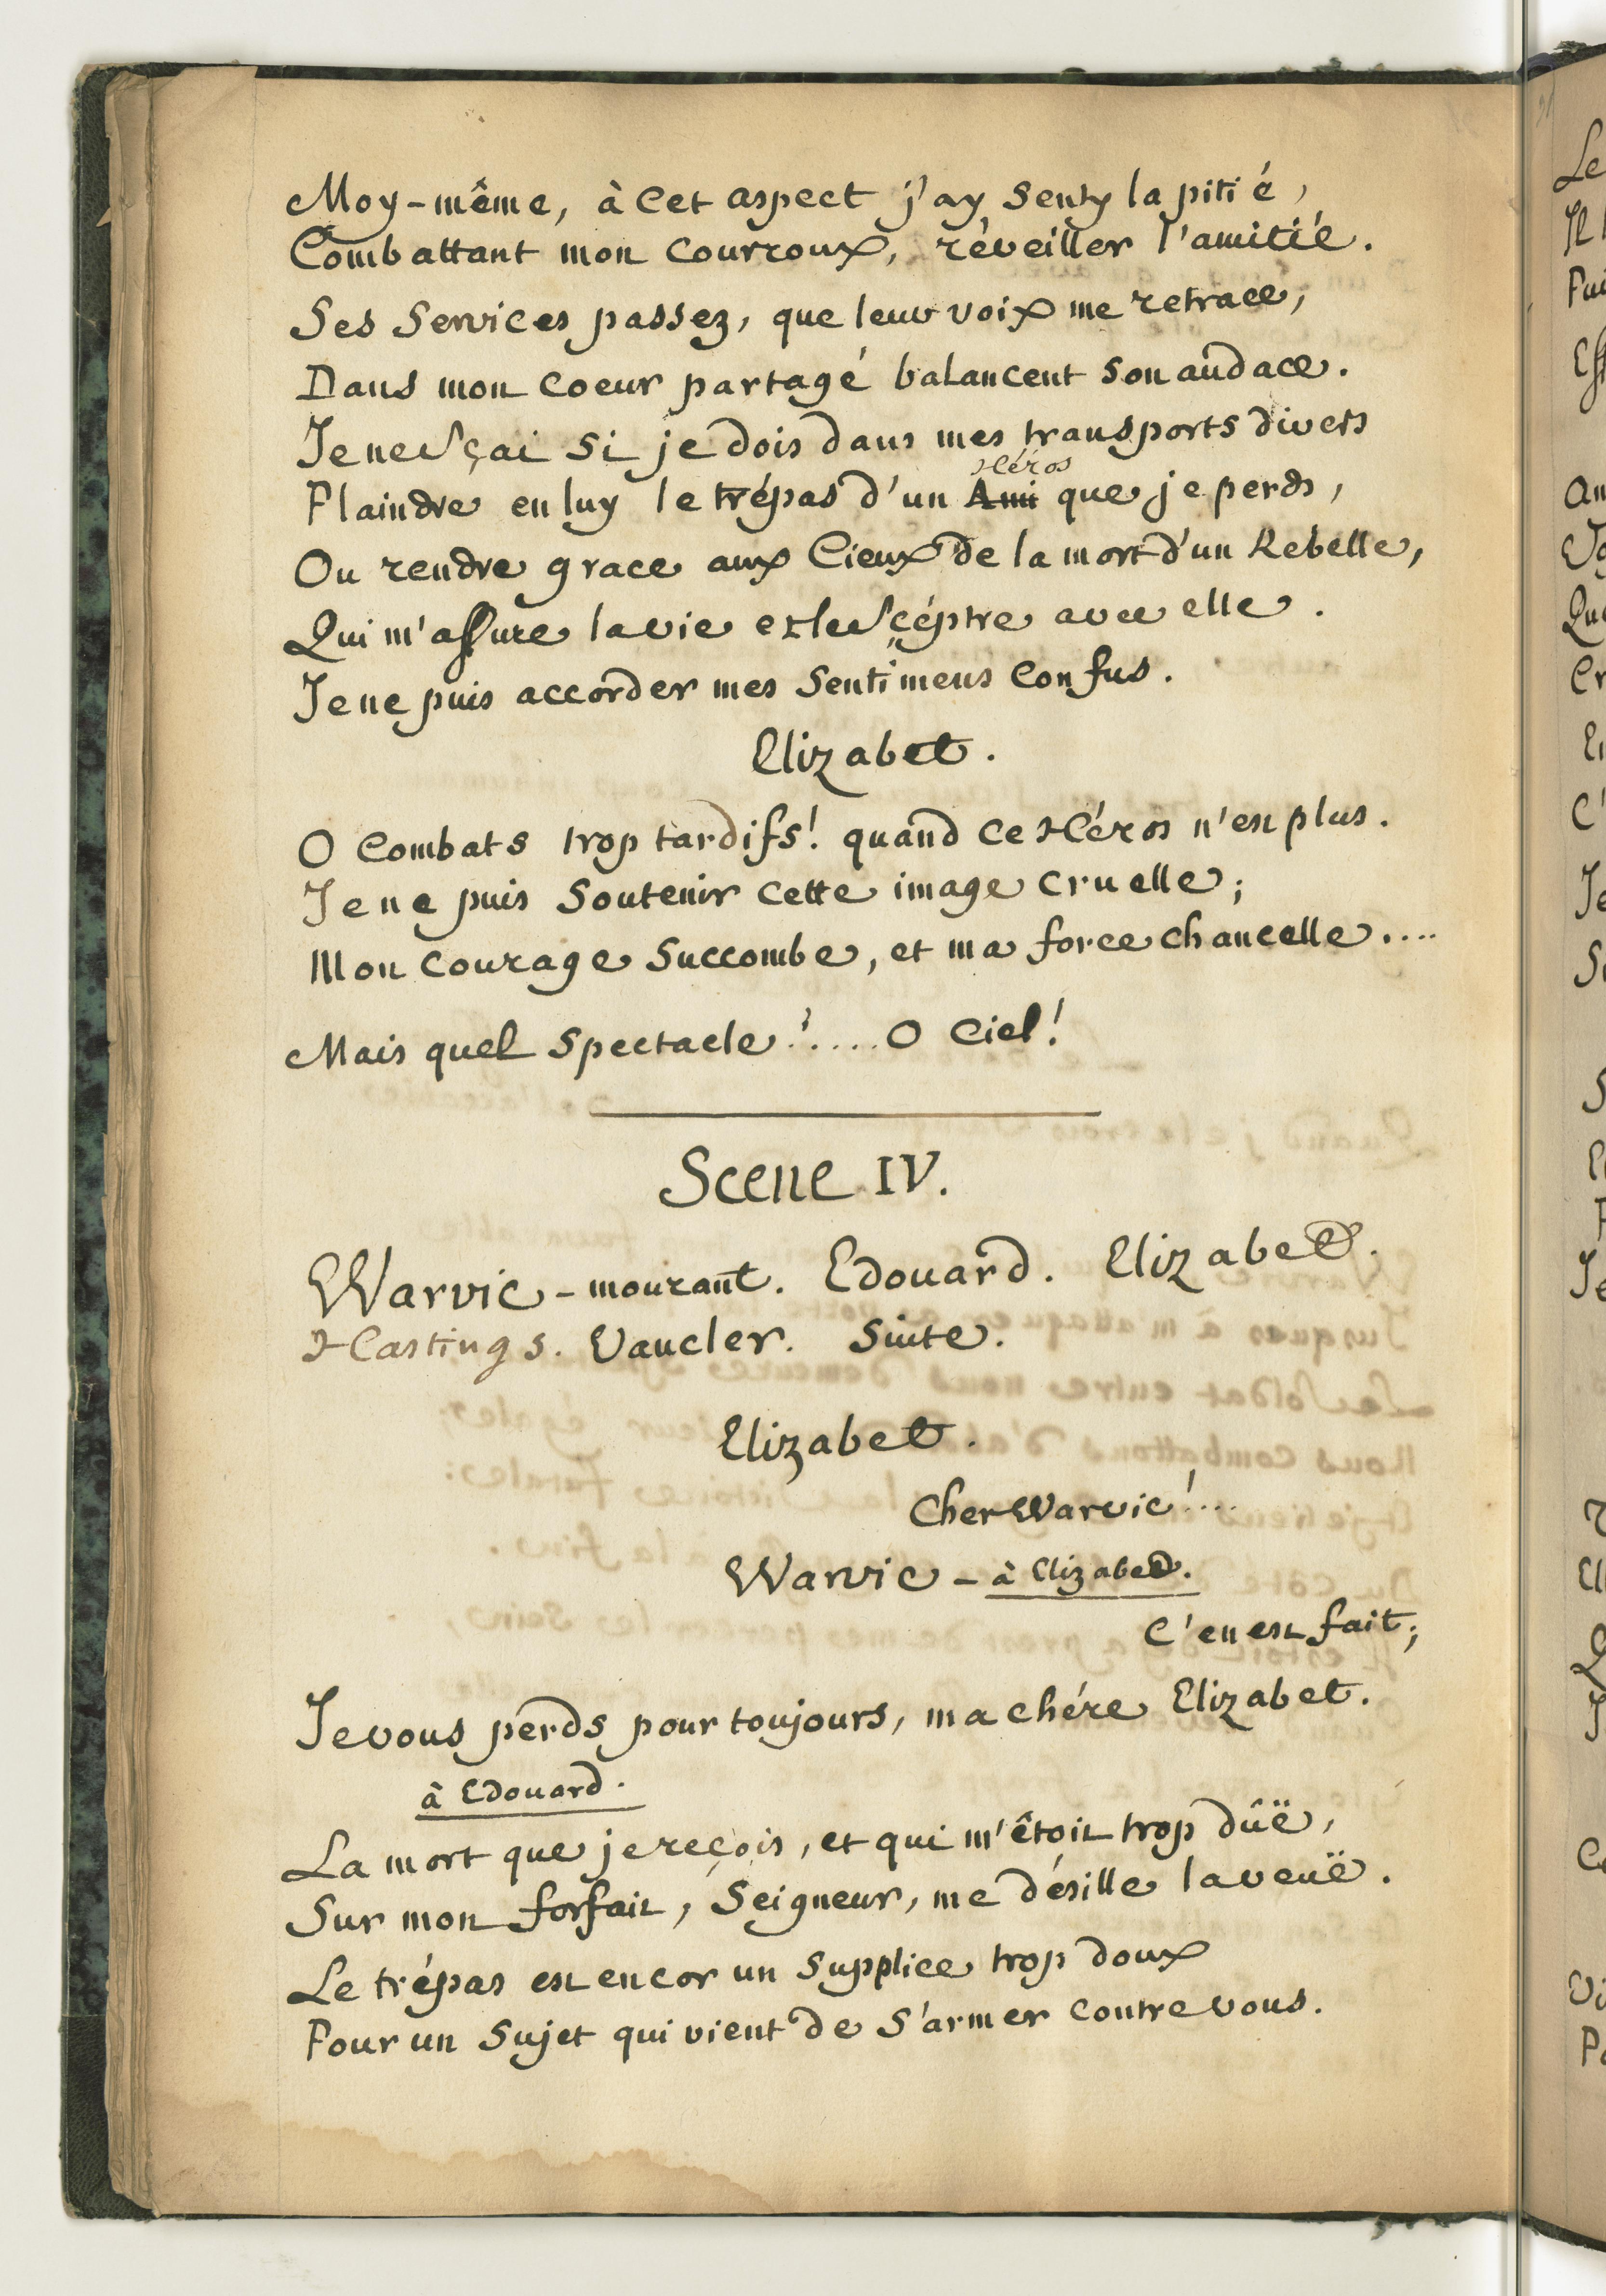 Moy-même, à cet aspect j'ay senty la pitié,
Combattant mon courroux, réveiller l'amitié.
Ses services passez, que leur voix me retrace,
Dans mon coeur partagé balancent son audace.
Je ne sçai si je dois dans mes transports divers
Héros
Plaindre en luy le trépas d'un Ami que je perds,
Ou rendre grace aux Cieux de la mort d'un Rebelle,
Qui m'assure la vie et le scéptre avec elle.
Je ne puis accorder mes sentimens confus.
Elizabet.
O combats trop tardifs! quand ce Héros n'est plus.
Je ne puis soutenir cette image cruelle;
Mon courage succombe, et ma force chancelle....
Mais quel spectacle!.... O Ciel!
Scene IV.
Warvic-mourant. Edouard. Elizabet.
Hastings. Vaucler. Suite.
Elizabet.
Cher Warvic!...
Warvic - à Elizabet.
C'en est fait;
Je vous perds pour toujours, ma chére Elizabet.
à Edouard.
La mort que je reçois, et qui m'étoit trop dûë,
Sur mon forfait, Seigneur, me désille la veuë.
Le trépas est encor un supplice trop doux
Pour un sujet qui vient de s'armer contre vous.